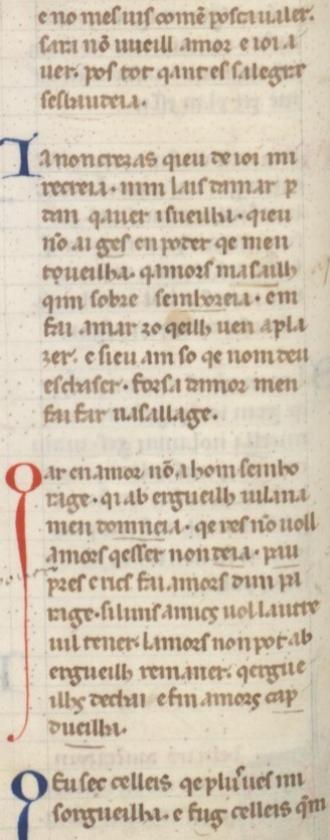 e no mes uis com̄e posca ualer.
sarai nō uueill amor e ioi a
uer. pos tot qant es saleger
sesbaudeia.
Ia non crezas qieu de ioi mi
recreia. nim lais damar p
dan qauer i sueilha. qieu
nō ai ges en poder qe men
toueilha. qamors masailh
qim sobre seinhoreia. em
fai amar zo qeilh uen a pla
zer. e sieu am so qe nom deu
eschaser. forsa damor men
fai far uasallage.
Qar en amor nō a hom seinho
rage. qi ab ergueilh uilana
men domneia. qe res nō uoll
amors qesser non deia. pau
pres e rics fai amors dun pa
rage. silunz amics uol lautre
uil tener. lamors non pot ab
ergueilh remaner. qergue
ilhz dechai e fin amors cap
dueilha.
Qeu sec celleis qe plus ues mi
sorgueilha. e fug celleis qm